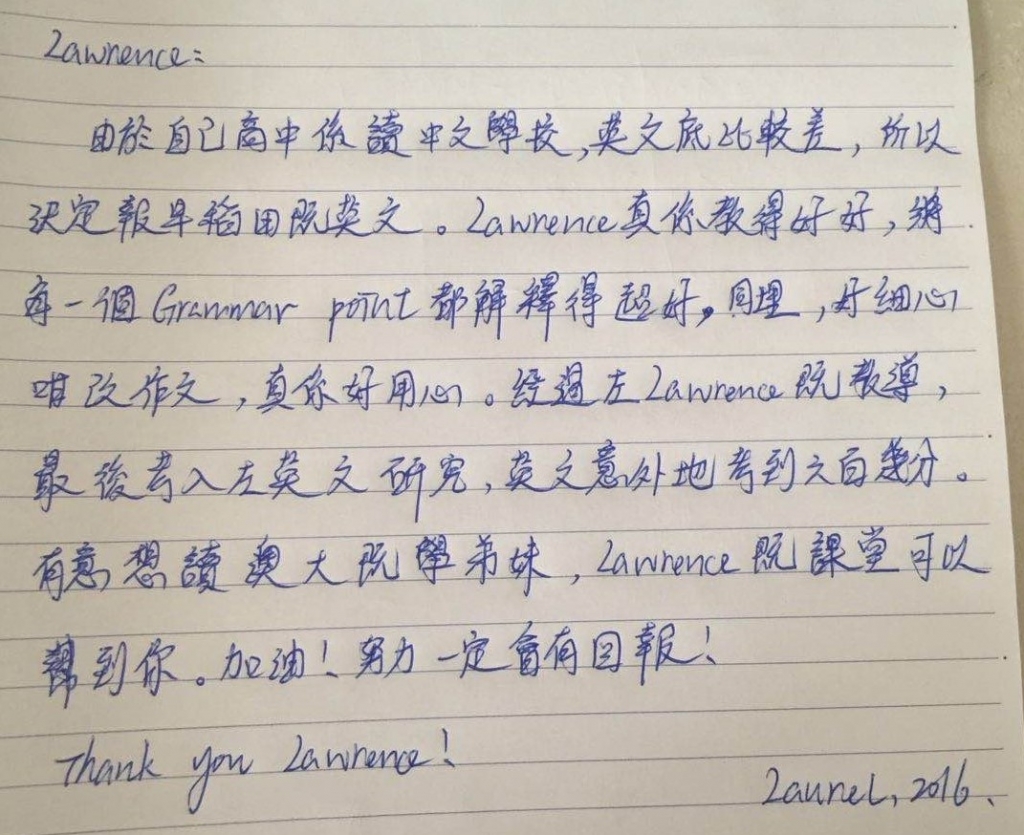 Lawrence:
由於自己高中係讀中文學校,英文底比較差,所以
決定報早稻田既英文。Lawrence真係教得好好,將
每一個Grammar point都解釋得超好。同埋,好細心
咁改作文,真係好用心。經過左Lawrence既教導,
最後考入左英文研究,英文意外地考到六百幾分。
有意想讀澳大既學弟妹,Lawrence既課堂可以
幫到你。加油!努力一定會有回報!
Thank you Lawrence!
Laurel, 2016.